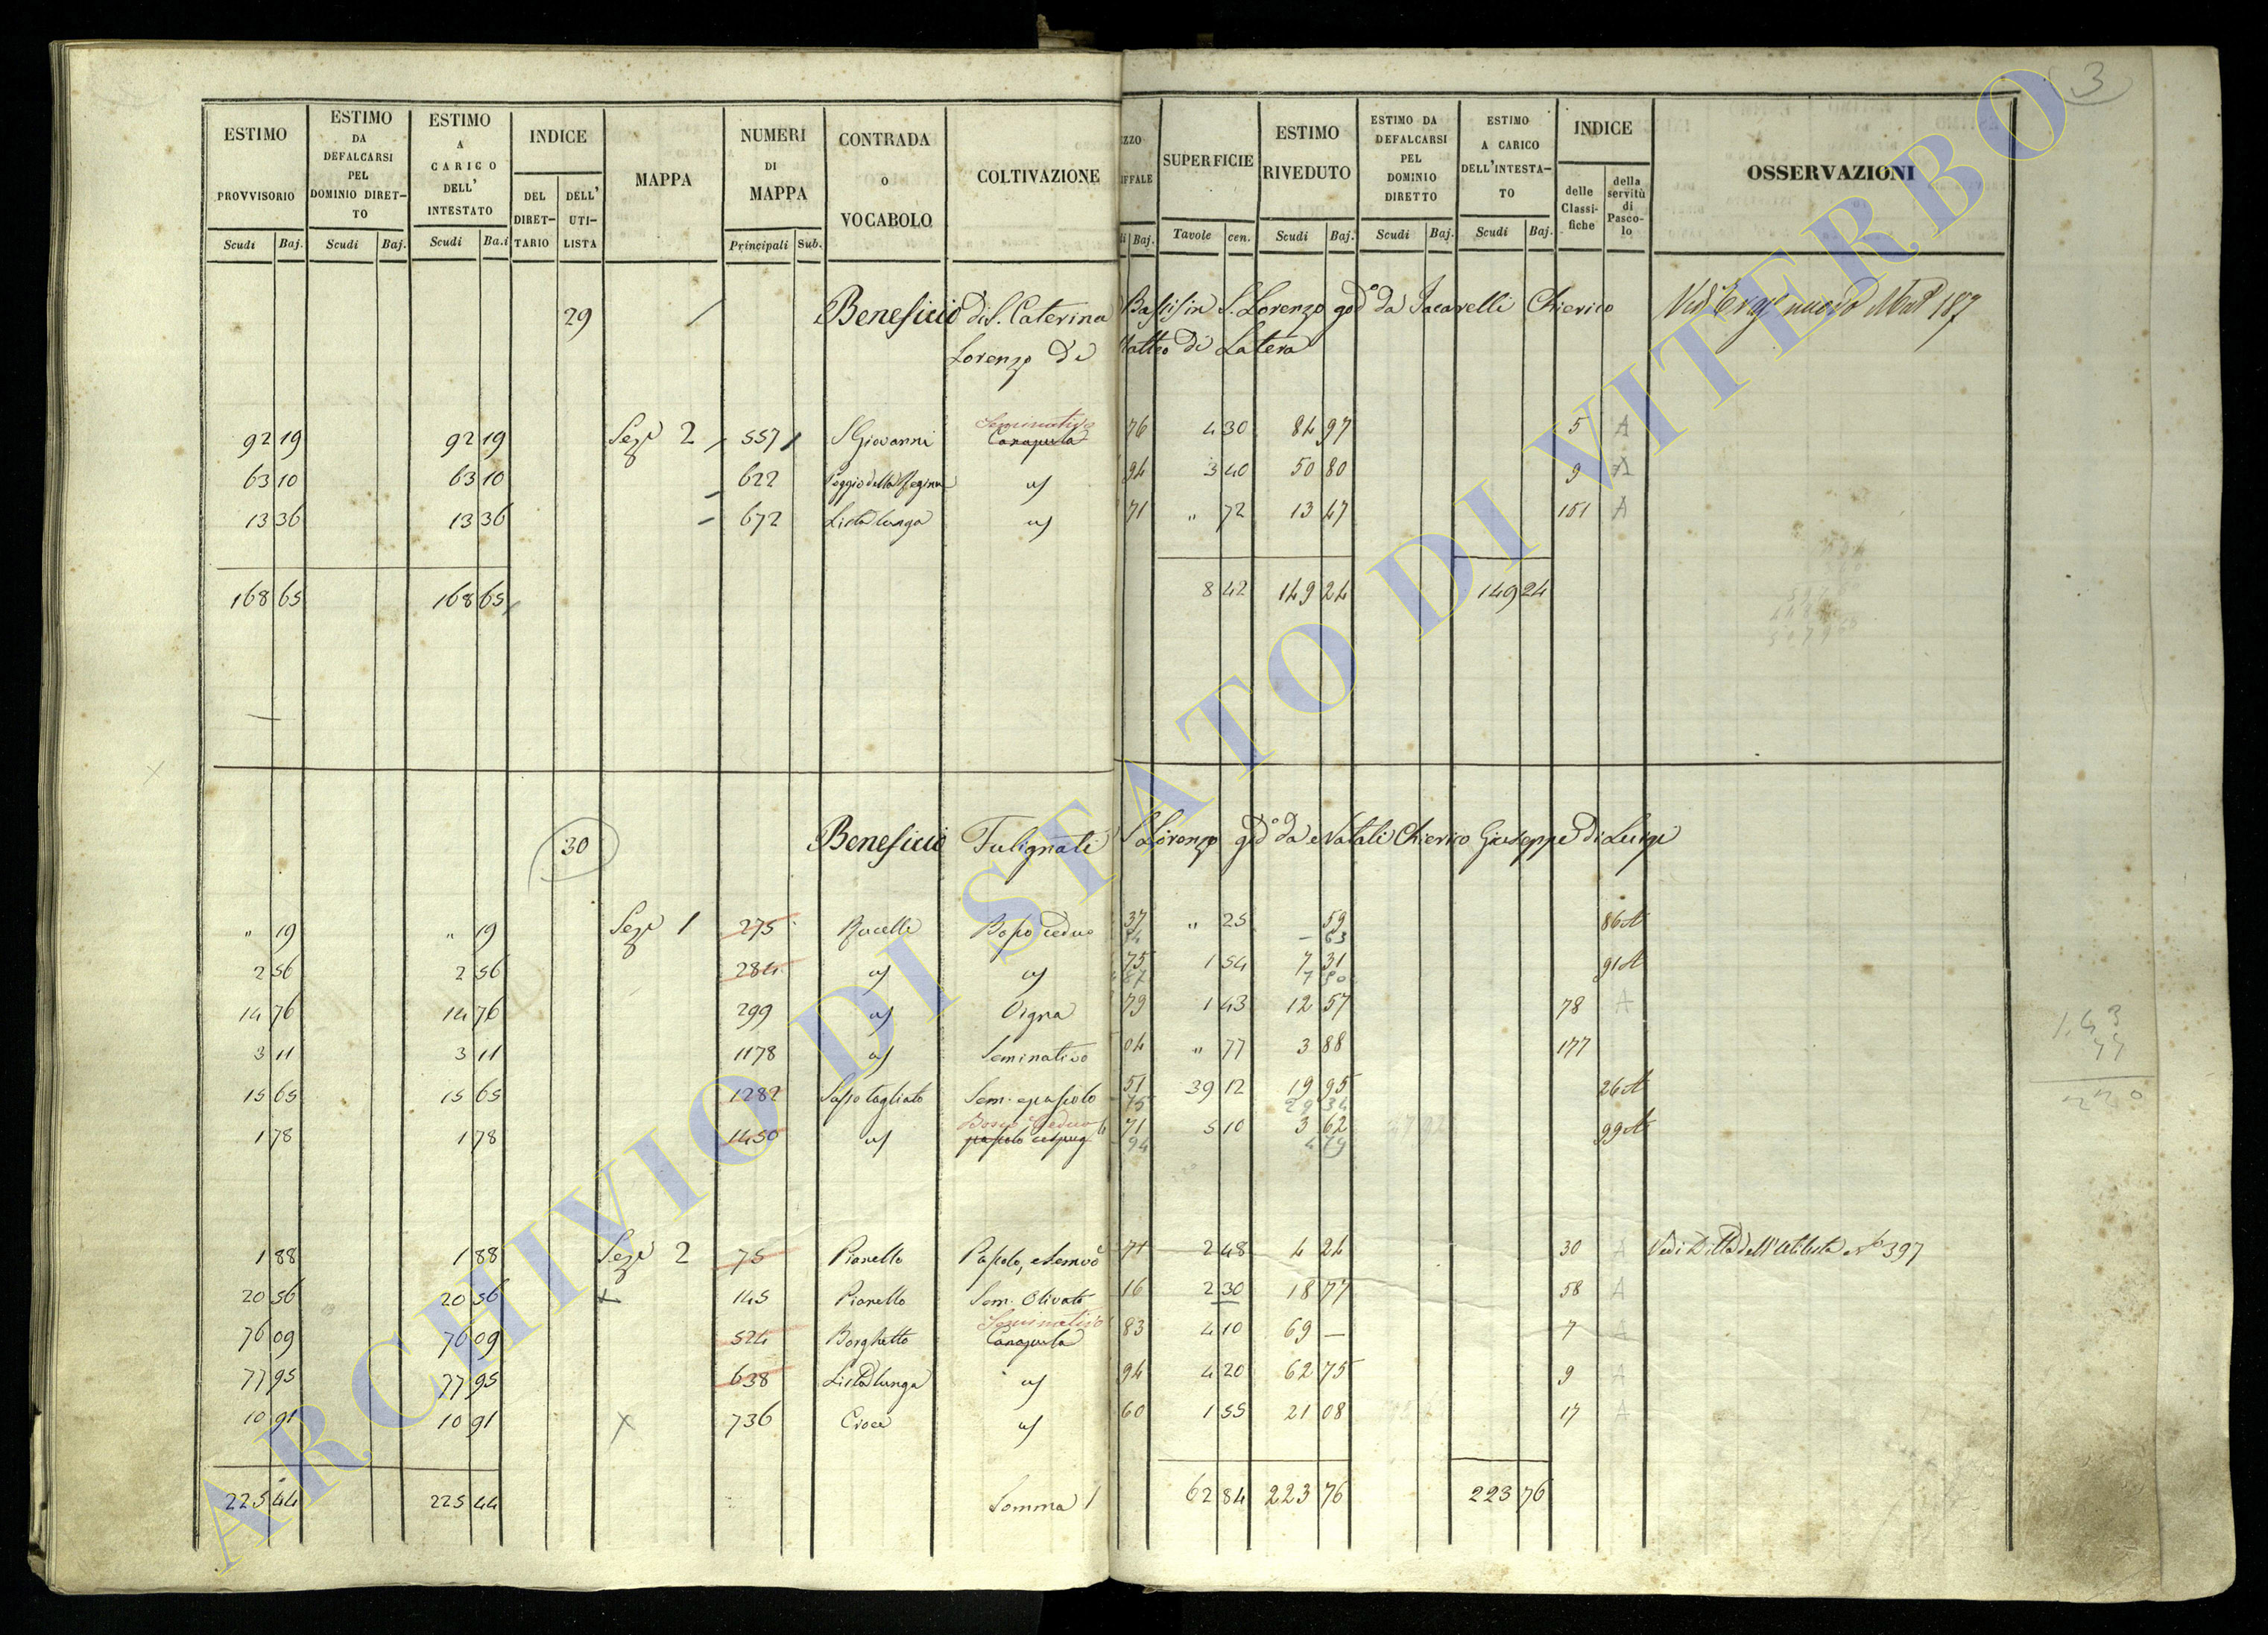 3
ESTIMO PROVVISORIO
ESTIMO DA DEFALCARSI PEL DOMINIO DIRETTO
ESTIMO A CARICO DELL' INTESTATO
INDICE
DEL DIRETTARIO
DELL' UTILISTA
MAPPA
NUMERI DI MAPPA
CONTRADA O VOCABOLO
COLTIVAZIONE
SUPERFICIE
ESTIMO RIVEDUTO
ESTIMO DA DEFALCARSI PEL DOMINIO DIRETTO
ESTIMO A CARICO DELL'INTESTATO
INDICE
delle Classifiche
della servitù di Pascolo
OSSERVAZIONI
Scudi Baj. Scudi Baj. Scudi Ba.i Principali Sub. Baj. Tavole cen. Scudi Baj. Scudi Baj. Scudi Baj.
29 Beneficio di S. Caterina in S. Lorenzo god° da Jacarelli Chierico
Lorenzo di Matteo di Latera
92 19 92 19 Sez. 2 557 S Giovanni Seminativo Canapula 76 4 30 84 97 5 A
63 10 63 10 622 Poggio della Regina 94 3 40 50 80 9 A
13 36 13 36 672 Lista lunga 71 " 72 13 47 151 A
168 65 168 65 8 42 149 24 149 24
30 Beneficio Fulignati S Lorenzo god° da Natali Chierico Giuseppe di Luigi
" 19 " 19 Sez. 1 275 Bosco ceduo 37 " 25 59 86 A
63
2 56 2 56 284 75 1 54 7 31 91 A
14 76 14 76 299 Vigna 79 1 43 12 57 78 A
3 11 3 11 1178 Seminativo 04 " 77 3 88 177
15 65 15 65 1282 Sasso tagliato Sem. e pascolo 51 39 12 19 95 26 A
75 29 34
1 78 1 78 1450 Bosco Ceduo pascolo cespug 71 5 10 3 62 99 A
94
1 88 1 88 Sez. 2 75 Pianello Pascolo, e Sem 71 2 48 4 24 30 A Vedi Ditta dell'Utilista N° 397
20 56 20 56 145 Pianello Sem. Olivato 16 2 30 18 77 58 A
76 09 76 09 524 Borghetto Seminativo Canapula 83 4 10 69 — 7 A
77 95 77 95 638 Lista lunga 94 4 20 62 75 9 A
10 91 10 91 736 Croce 60 1 55 21 08 17 A
225 44 225 44 Somma 62 84 223 76 223 76
1.43
77
220
ARCHIVIO DI STATO DI VITERBO